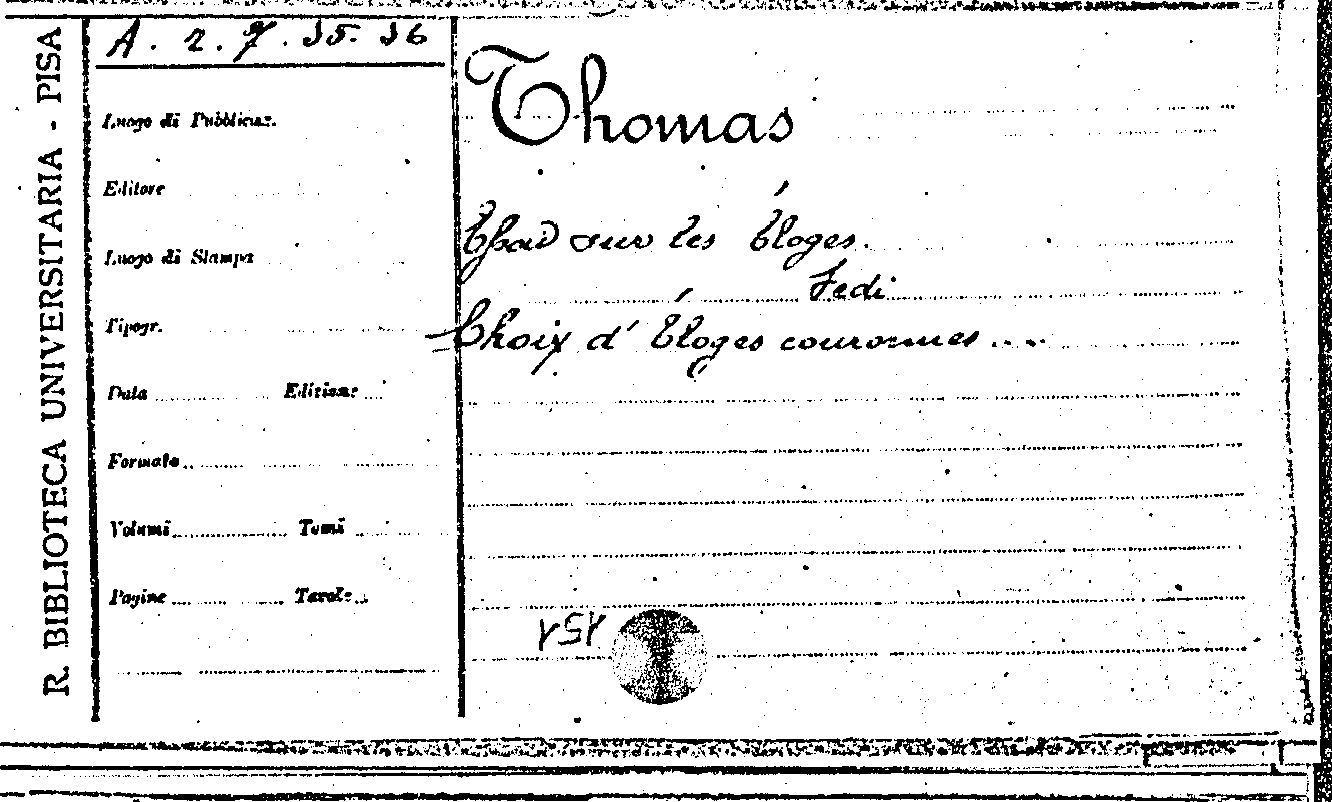 R. BIBLIOTECA UNIVERSITARIA - PISA
A. 2. 7. 35. 36
Luogo di Pubblicaz.
Editore
Luogo di Stampa
Tipogr.
Data Edizione
Formato
Volumi Tomi
Pagine Tavole
Thomas
Essai sur les Éloges.
Vedi
Choix d'Éloges couronnes ....